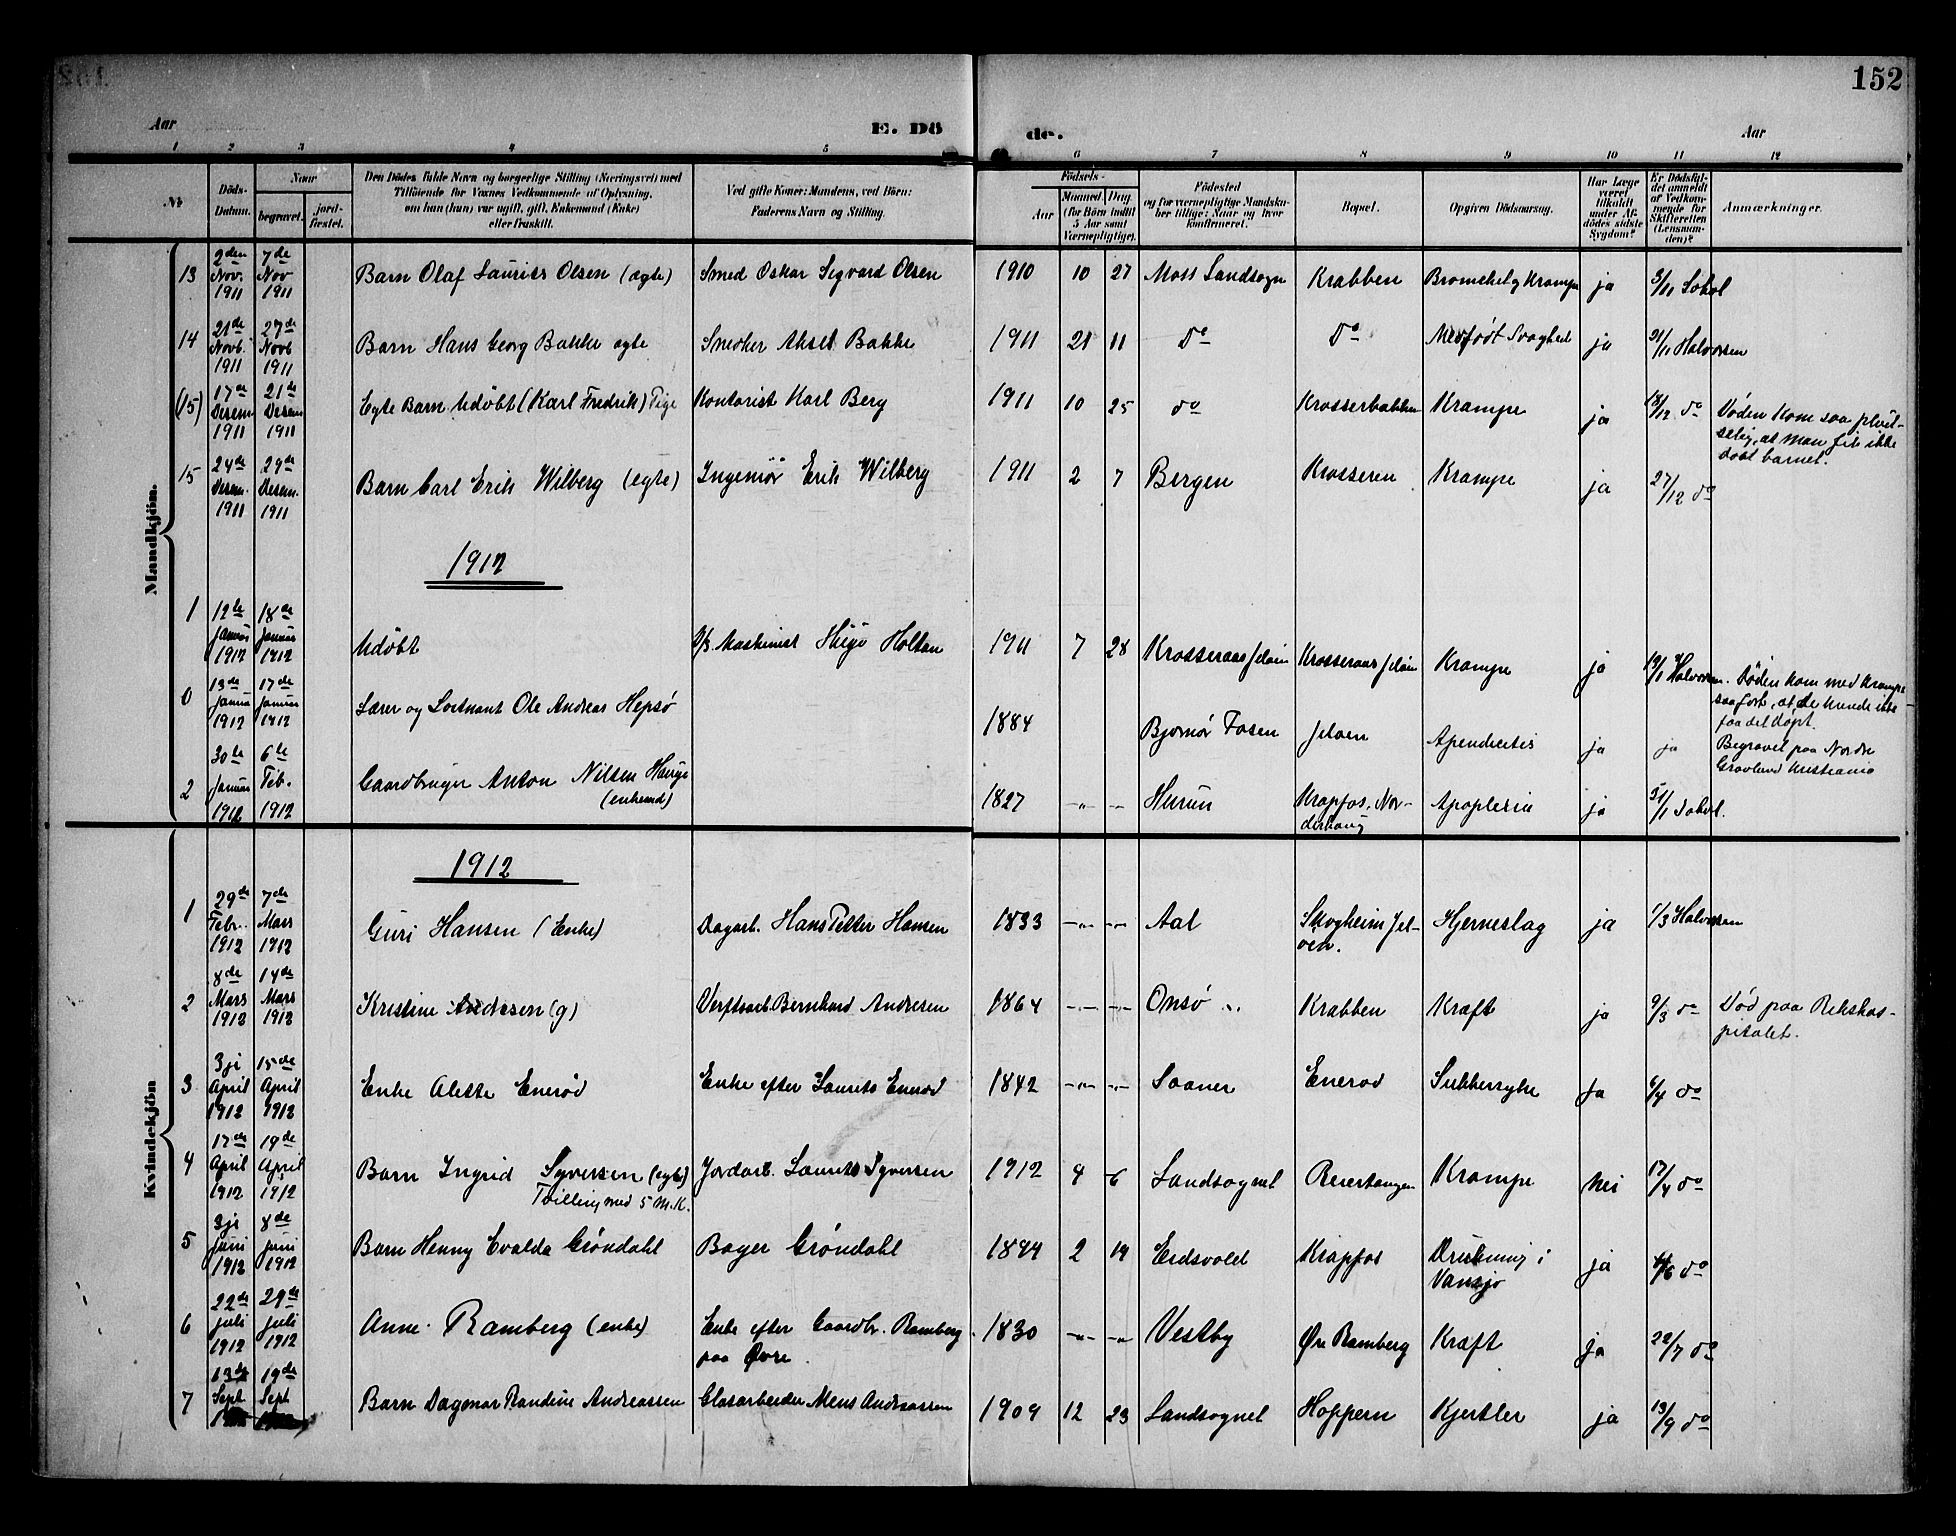 152
Aar
E. Dö
de.
Aar
1 2 3 4 5 6 7 8 9 10 11 12
No
Döds-Datum.
Naar
begravet.
jord-fæstet.
Den Dödes fulde Navn og borgerlige Stilling (Næringsvei) med
Tilföiende for Voxnes Vedkommende af Oplysning,
om han (hun) var ugift, gift, Enkemand (Enke)
eller fraskilt.
Ved gifte Koner: Mandens, ved Börn:
Faderens Navn og Stilling.
Födsels-
Aar
Maaned. Dag.
(for Börn indtil
5 Aar samt
Værnepligtige).
Födested
og for værnepligtige Mandska-
ber tillige: Naar og hvor
konfirmeret.
Bopæl.
Opgiven Dödsaarsag.
Har Læge
været
tilkaldt
under Af-
dödes sidste
Sygdom?
Er Dödsfal-
det anmeldt
af Vedkom-
mende for
Skifteretten
(Lensman-
den)?
Anmærkninger.
Mandkjön.
13 2den Nov. 1911 7de Nov 1911 Barn Olaf Laurits Olsen (ægte) Smed Oskar Sigvard Olsen 1910 10 27 Moss Landsogn Krabben Bronchit og Krampe ja 3/11 Sobol
14 21de Novb. 1911 27de Novb 1911 Barn Hans Georg Bakke ægte Snedker Aksel Bakke 1911 21 11 Do Do Medfødt Svaghed ja 21/11 Halvorsen
(15) 17de Desem 1911 21de Desem 1911 Egte Barn Udøbt (Karl Fredrik) Kontorist Karl Berg 1911 10 25 do Krosserbakken Krampe ja 18/12 do Døden kom saa plud-
selig, at man fik ikke
døbt barnet.
15 24de Desem. 1911 29de Desem. 1911 Barn Carl Erik Wilberg (egte) Ingeniør Erik Wilberg 1911 2 7 Bergen Krosseren Krampe ja 27/12 do
1912
1 12te Januar 1912 18de Januar 1912 Udøbt Maskinist Hugo Holtan 1911 7 28 Krosseraas Jeløen Krosseraas Jeløen Krampe ja 13/1 Halvorsen. Døden kom med Krampe
saa fort, at de kunde ikke
faa det døpt.
0 13de Januar 1912 17de Januar 1912 Lærer og Løitnant Ole Andreas Hepsø 1884 Bjørnør Fosen Jeløen Apendicitis ja ja Begravet paa Nordre
Gravlund Kristiania
2 30te Januar 1912 6te Feb. 1912 Gaardbruger Anton Nilsen Hauge
(enkemd) 1827 -"- -"- Hurum Krapfos, Nor-
derhaug Apoplexia ja 31/1 Sobol.
Kvindekjön
1912
1 29de Febr. 1912 7de Mars 1912 Guri Hansen (Enke) Dagarb. Hans Petter Hansen 1833 -"- -"- Aal Skogheim Jel-
øen. Hjerneslag ja 1/3 Halvorsen
2 8de Mars 1912 14de Mars 1912 Kristine Andresen (g) Verftsarb. Bernhard Andresen 1864 -"- -"- Onsø Krabben Kræft ja 9/3 do Død paa Rikshos-
pitalet.
3 3je April 1912 15de April 1912 Enke Alette Enerød Enke efter Laurits Enerød 1842 -"- -"- Saaner Enerød Sukkersyke Ja 6/4 do
4 17de April 1912 19de April 1912 Barn Ingrid Syversen (egte)
Tvilling med 5 M.K. Jordarb. Laurits Syversen 1912 4 6 Landsognet Reiertangen Krampe nei 17/4 do
5 3je Juni 1912 8de Juni 1912 Barn Henny Evalda Grøndahl Bager Grøndahl 1894 2 19 Eidsvold Krapfos Drukning i
Vansjø ja 4/6 do
6 22de juli 1912 29de juli 1912 Anne Ramberg (enke) Enke efter Gaardbr. Ramberg
paa Øvre. 1830 -"- -"- Vestby Øvre Ramberg Kræft ja 22/7 do
7 13de Sept 19de Sept Barn Dagmar Randine Andreassen Glasarbeider Mens Andreassen 1909 12 23 Landsognet Hoppern Kjertler ja 13/9 do